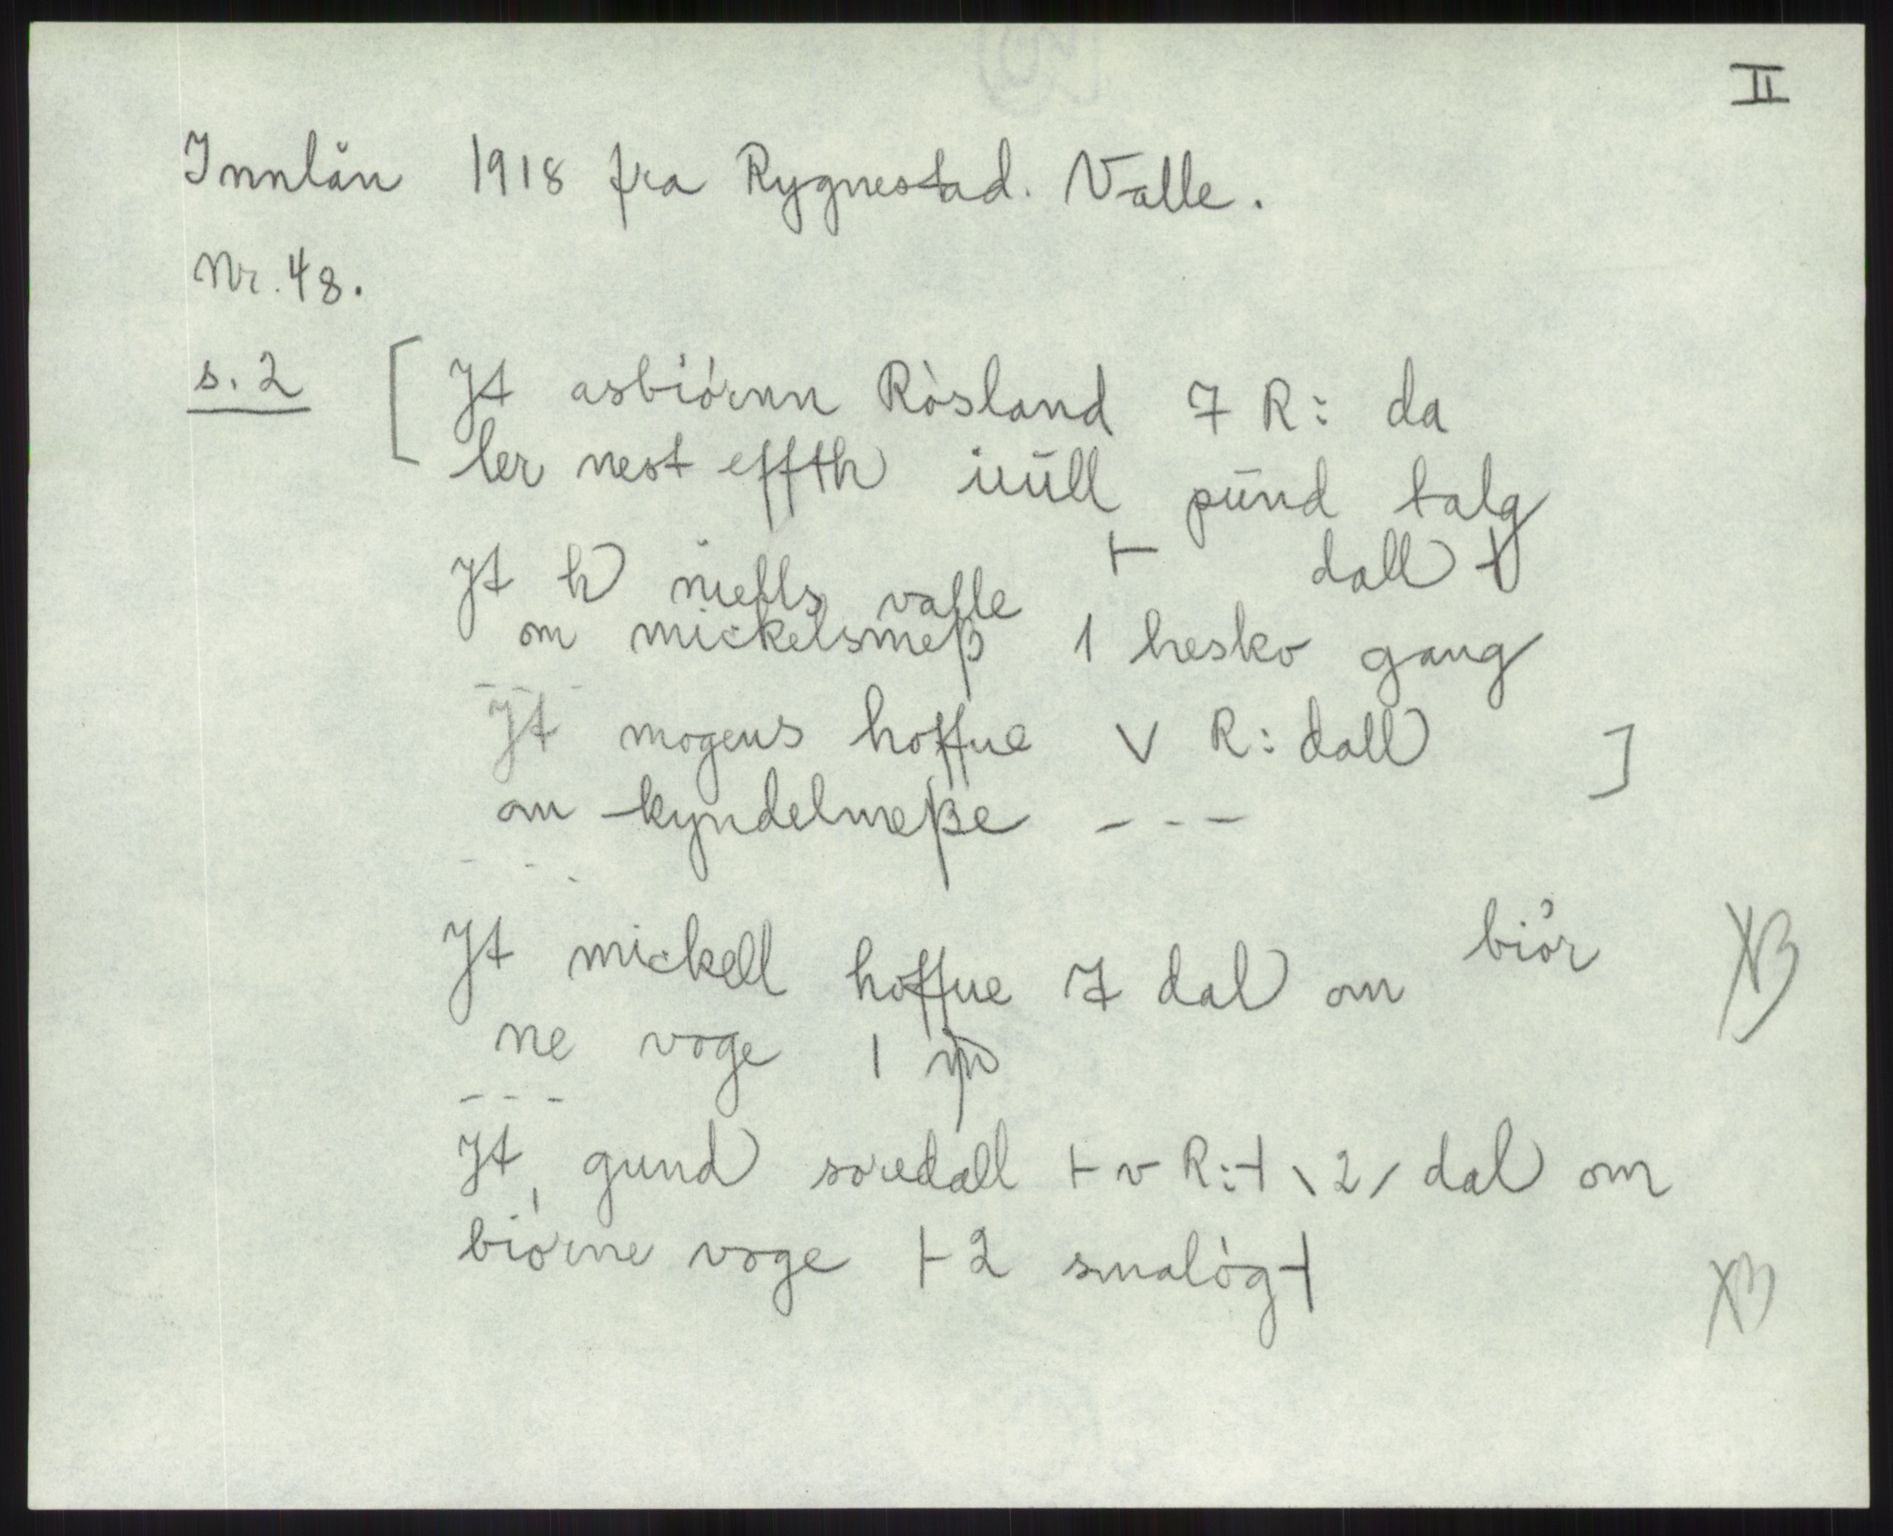 II
Innlån 1918 fra Rygnestad. Valle.
Nr. 48.
s. 2 [ Jt asbiórnn Ròsland 7 R: da
ler nest effth iūūll pūnd talg
Jt h niells valle ⊢ dall ⊣
om mickelsmeß 1 hesko gang
---
Jt mogens hoffue V R: dall ]
om kyndelmeße ---
---
Jt mickell hoffue 7 dal om biór
ne voge 1
XB
---
Jt, gund soredall ⊢ v R: ⊣ \ 2 / dal om
biórne voge ⊢ 2 smalòg ⊣
XB